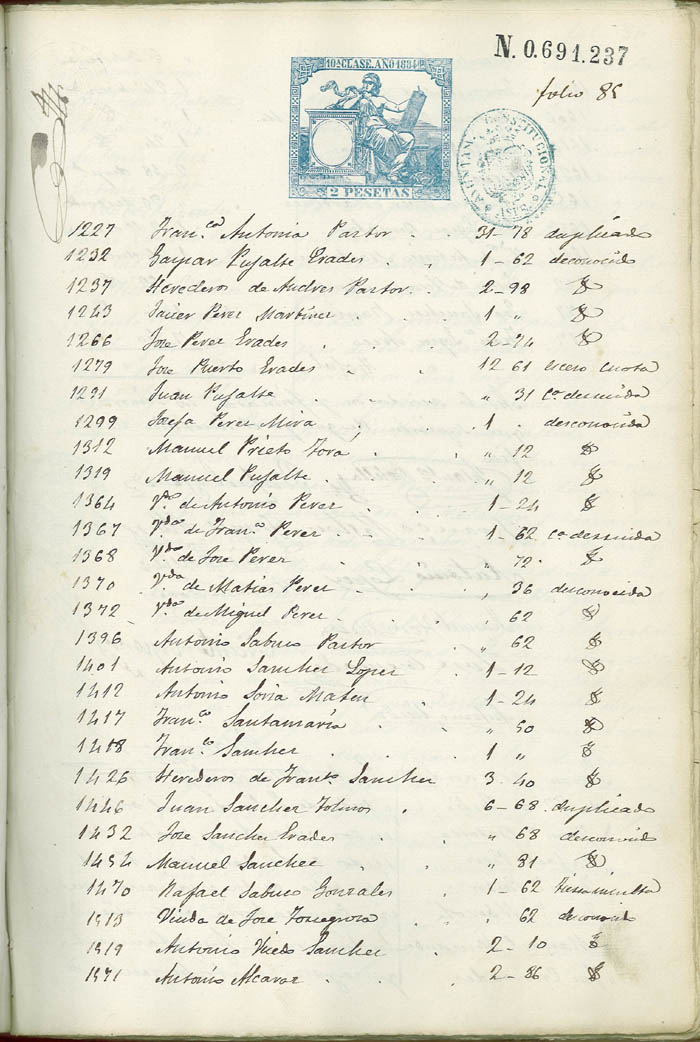 N. 0.691.237
10ª CLASE. AÑO 1884
folio 85
AYUNTAMIENTO CONSTITUCIONAL
2 PESETAS
1227 Fran.ca Antonia Pastor . . 31-78 duplicado
1232 Gaspar Pujalte Erades . . 1-62 deconocido
1237 Herederos de Andres Pastor . . 2-98
1243 Javier Perez Martinez . . 1 "
1266 Jose Perez Erades . . 2-74
1279 Jose Puerto Erades . . 12 61 cuota
1291 Juan Pujalte . . " 31
1299 Josefa Perez Mira . . 1 . desconocida
1312 Manuel Prieto Jorá . . " 12
1319 Manuel Pujalte . . " 12
1364 V.da de Antonio Perez . . 1-24
1367 V.da de Fran.co Perez . . 1-62
1368 V.da de Jose Perez . . " 72
1370 V.da de Matias Perez . , 36 desconocida
1372 V.da de Miguel Perez . . , 62
1396 Antonio Sabuco Pastor . " 62
1401 Antonio Sanchez Lopez . 1-12
1412 Antonio Soria Mateu . 1-24
1417 Fran.co Santamaría . " 50
1418 Fran.co Sanchez . . 1 "
1426 Herederos de Fran.co Sanchez 3-40
1446 Juan Sanchez . 6-68 duplicado
1432 Jose Sanchez Erades . " 68 desconocido
1454 Manuel Sanchez . . " 81
1470 Rafael Sabuco Gonzales . 1-62
1513 Viuda de Jose Torregrosa . . 62 desconocido
1519 Antonio Sanchez . 2-10
1571 Antonio Alcaraz . . 2-86